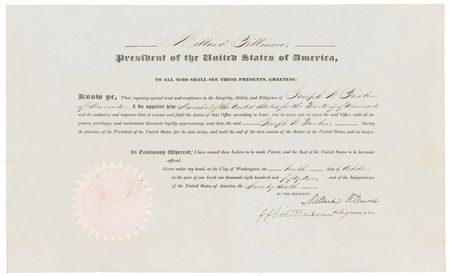 Millard Fillmore,
President of the United States of America,
TO ALL WHO SHALL SEE THESE PRESENTS, GREETING:
KNOW YE, That, reposing special trust and confidence in the Integrity, Ability, and Diligence of Joseph W.
I do appoint him Marshal of the United States for the Territory of
and do authorize and empower him to execute and fulfil the duties of that Office according to Law; AND TO HAVE AND TO HOLD the said Office, with all the
powers, privileges, and emoluments thereunto legally appertaining, unto him, the said Joseph W. during
the pleasure of the President of the United States for the time being, and until the end of the next session of the Senate of the United States, and no longer.
In Testimony Whereof, I have caused these Letters to be made Patent, and the Seal of the United States to be hereunto
affixed.
Given under my hand, at the City of Washington, the tenth day of October,
in the year of our Lord one thousand eight hundred and fifty two, and of the Independence
of the United States of America, the Seventy Seventh.
BY THE PRESIDENT:
Millard Fillmore
Secretary of State.